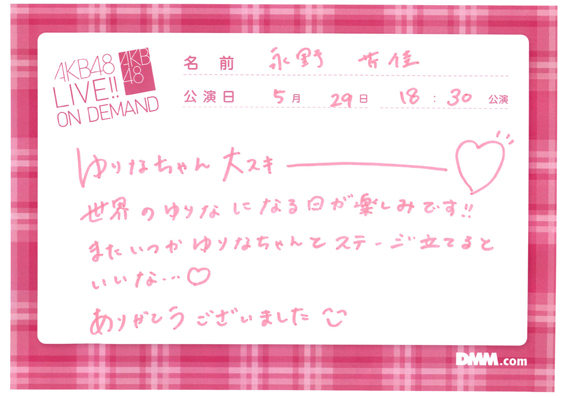 AKB48
LIVE!!
ON DEMAND
AKB
48
名前 永野 芹佳
公演日 5月 29日 18:30 公演
ゆりなちゃん大スキ――♡
世界のゆりなになる日が楽しみです!!
またいつかゆりなちゃんとステージ立てると
いいな…♡
ありがとうございました
DMM.com